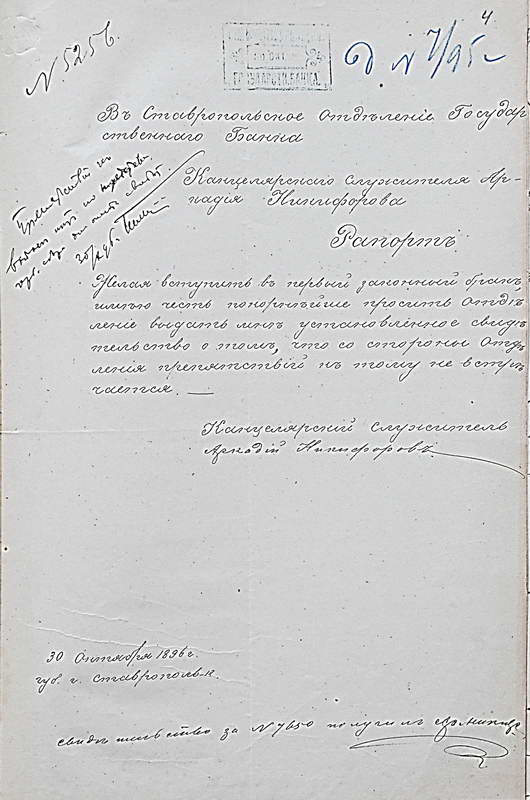 4
N. 5256.
ГОСУДАРСТВ. БАНКА.
д N 7/95 г
Въ Ставропольское Отдѣленіе Государ
ственнаго Банка
Канцелярскаго служителя Ар-
кадія Никифорова
Рапортъ
Желая вступить въ первый законный бракъ
имѣю честь покорнѣйше просить Отдѣ
леніе выдать мнѣ установленное свидѣ
тельство о томъ, что со стороны Отдѣ
ленія препятствій къ тому не встрѣ
чается. —
Канцелярскій служитель
Аркадій Никифоровъ
30 Октября 1896 г.
губ. г. Ставрополь-к.
свидѣтельство за N 7650 получилъ